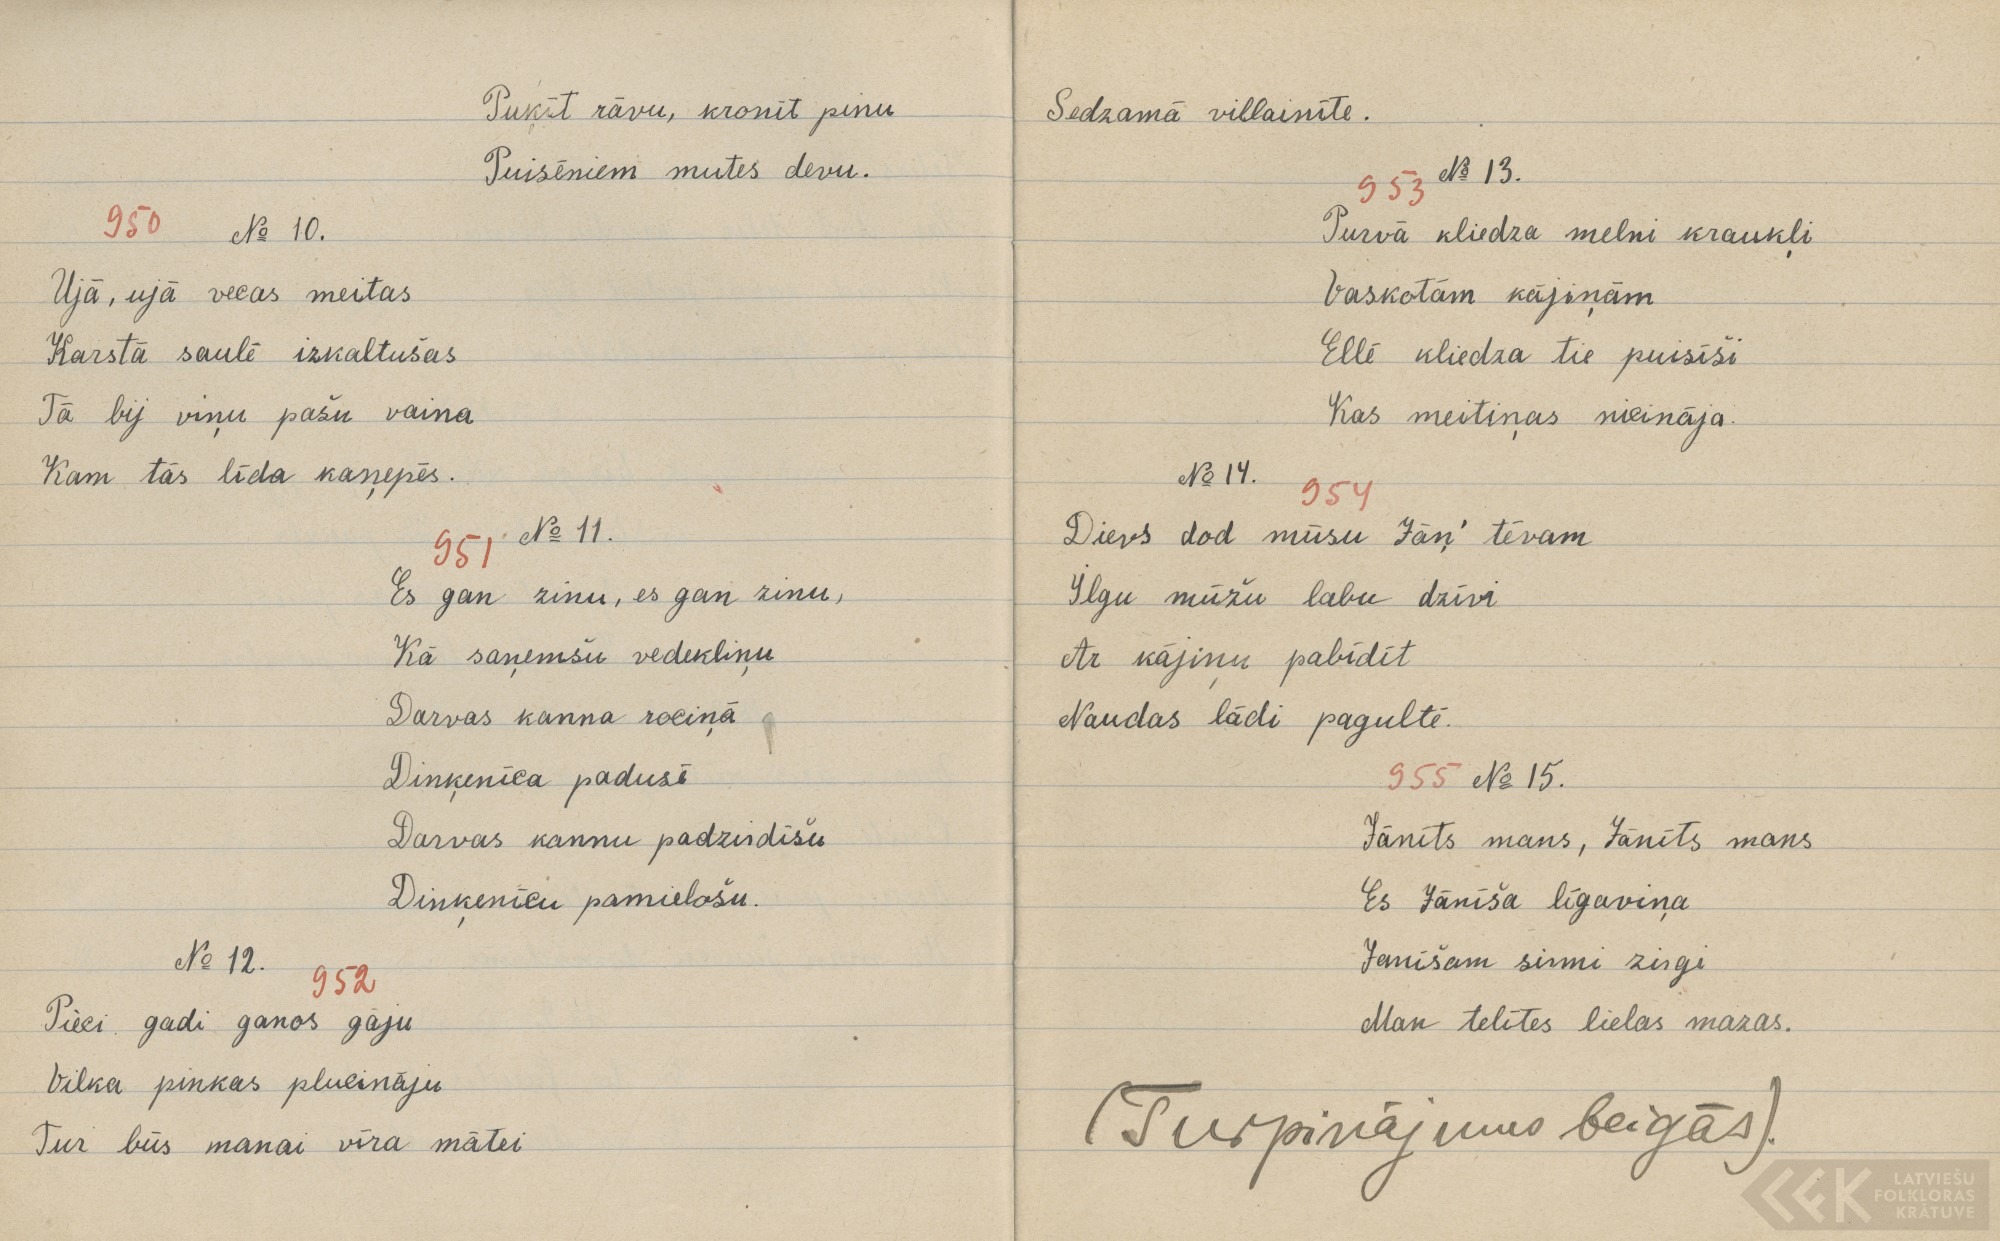 Puķīt rāvu, kronīt pinu
Puisēniem mutes devu.
950 № 10.
Ujā, ujā vecas meitas
Karstā saulē izkaltušas
Tā bij viņu pašu vaina
Kam tās līda kaņepēs.
951 № 11.
Es gan zinu, es gan zinu,
Kā saņemšu vedekliņu
Darvas kanna rociņā
Dinķenīca padusē
Darvas kannu padzirdīšu
Dinķenīcu pamielošu.
№ 12. 952
Pieci gadi ganos gāju
Vilka pinkas plucināju
Tur būs manai vīra mātei
Sedzamā villainīte.
953 № 13.
Purvā kliedza melni kraukļi
Vaskotām kājiņām
Ellē kliedza tie puisīši
Kas meitiņas nicināja.
№ 14. 954
Dievs dod mūsu Jāņ' tēvam
Ilgu mūžu labu dzīvi
Ar kājiņu pabīdīt
Naudas lādi pagultē.
955 № 15.
Jānīts mans, Jānīts mans
Es Jānīša līgaviņa
Janīšam sirmi zirgi
Man telītes lielas mazas.
(Turpinājums beigās).
LATVIEŠU
FOLKLORAS
KRĀTUVE